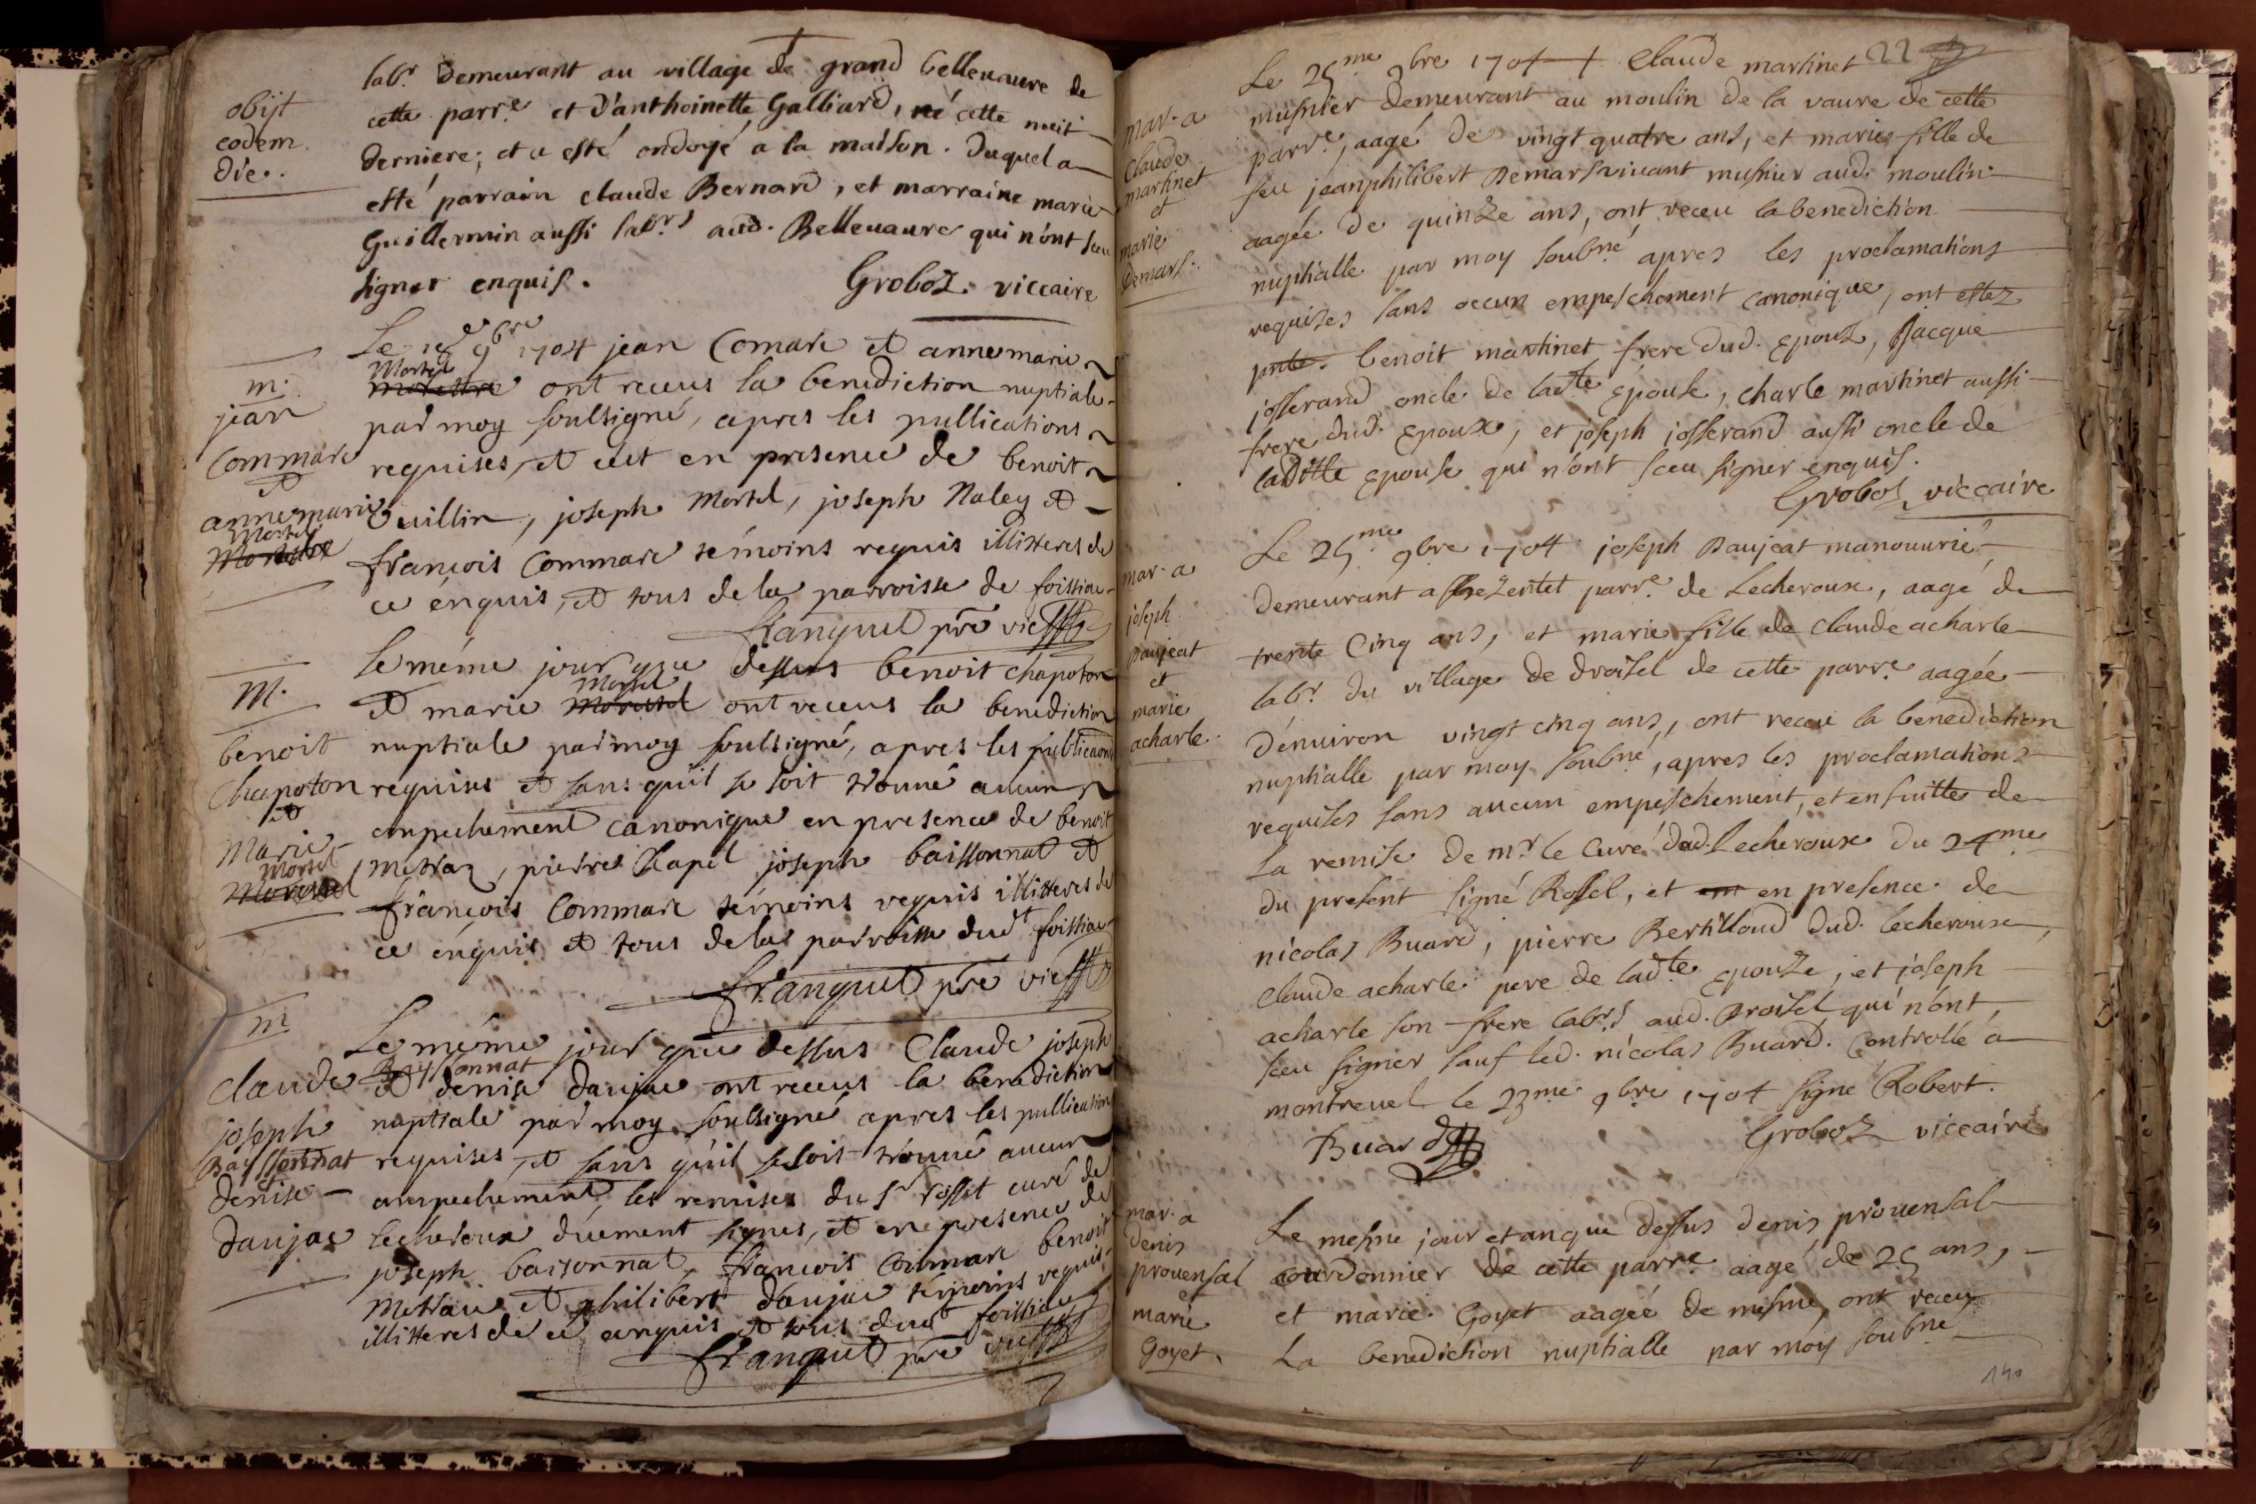 obijt
eodem
die.
labr. demeurant au village de grand belleuaure de
cette parre. et d'anthoinette Galliard, né cette nuit
derniere; et a esté ondoyé a la maison. duquel a
esté parrain claude Bernard, et marraine marie
Guillermin aussi labrs. aud. Belleuaure qui n'ont sceu
signer enquis.
Groboz. viccaire
m.
jean
Commarc
et
anne marie
Mortel
Le 9bre 1704 jean Comarc et anne marie
Mortel
ont receus la benediction nuptiale
par moy soubsigné, apres les pullications
requises, et cect en presence de benoit
Vuillin, joseph Mortel, joseph Naley et
françois Commarc témoins requis illitteres de
ce enquis, et tous de la parroisse de foissiac
franquet pre vic
M.
benoit
Chapoton
et
Marie
Mortel
le méme jour que dessus benoit chapoton
Mortel
et marie ont receus la benediction
nuptiale par moy soubsigné, apres les publicaons
requises et sans qu'il se soit trouué aucun
empechement canonique en presence de benoit
Metraz, pierre Chapel joseph baissonnat et
françois Commarc témoins requis illitteres de
ce énquis et tous de la parroisse dudt foissiac
franquet pre vic
m
claude
joseph
Bayssonnat
et
denise
daujac
Le méme jour que dessus Claude joseph
Bayssonnat
et denise daujac ont receus la benediction
nuptiale par moy soubsigné apres les pullication
requises, et sans qu'il se soit trouué aucun
empechement, les remises du sr rosset curé de
lecheroux duement signes, et en presence de
joseph baissonnat, françois Commarc benoit
Metraz et philibert daujac témoins requis
illitteres de ce enquis et tous dudt foissiac
franquet pre vic
22
mar. a
Claude
martinet
et
marie
demars.
Le 25me 9bre 1704 Claude martinet
musnier demeurant au moulin de la vaure de cette
parre, aagé de vingt quatre ans, et marie fille de
feu jeanphilibert Demars viuant musnier aud. moulin
aagée de quinze ans, ont receu la benediction
nuptialle par moy soubné apres les proclamations
requises sans occun empeschement canonique, ont estez
pnts. benoit martinet frere dud. Epoux, Jacque
josserand oncle de ladte Epouse, charle martinet aussi
frere dud. Epoux, et joseph josserand aussi oncle de
laditte Epouse qui n'ont sceu signer enquis.
Groboz viccaire
mar. a
joseph
Daujeat
et
marie
acharle.
Le 25me 9bre 1704 joseph Daujeat manouurié
demeurant a parre. de Lecheroux, aagé de
trente Cinq ans, et marie fille de claude acharle
labr. du village de droisel de cette parre. aagée
d'enuiron vingt cinq ans, ont receu la benediction
nuptialle par moy soubné, apres les proclamations
requises sans aucun empeschement, et ensuitte de
La remise de mr. le Curé dud. Lecheroux du 24me
du present signé Rossel, et en presence de
nicolas Buard, pierre Bertilloud dud. lecheroux,
claude acharle pere de ladte Epouze, et joseph
acharle son frere labrs aud. Droisel qui n'ont
sceu signer sauf led. nicolas Buard. Controllé a
montreuel le 23me. 9bre 1704 signé Robert.
Buard
Groboz viccaire
mar. a
denis
prouensal
et
marie
Goyet.
Le mesme jour et an que dessus denis prouensal
courdonnier de cette parre aagé de 25 ans,
et marie Goyet aagée de mesme, ont receu
La benediction nuptialle par moy soubné
140